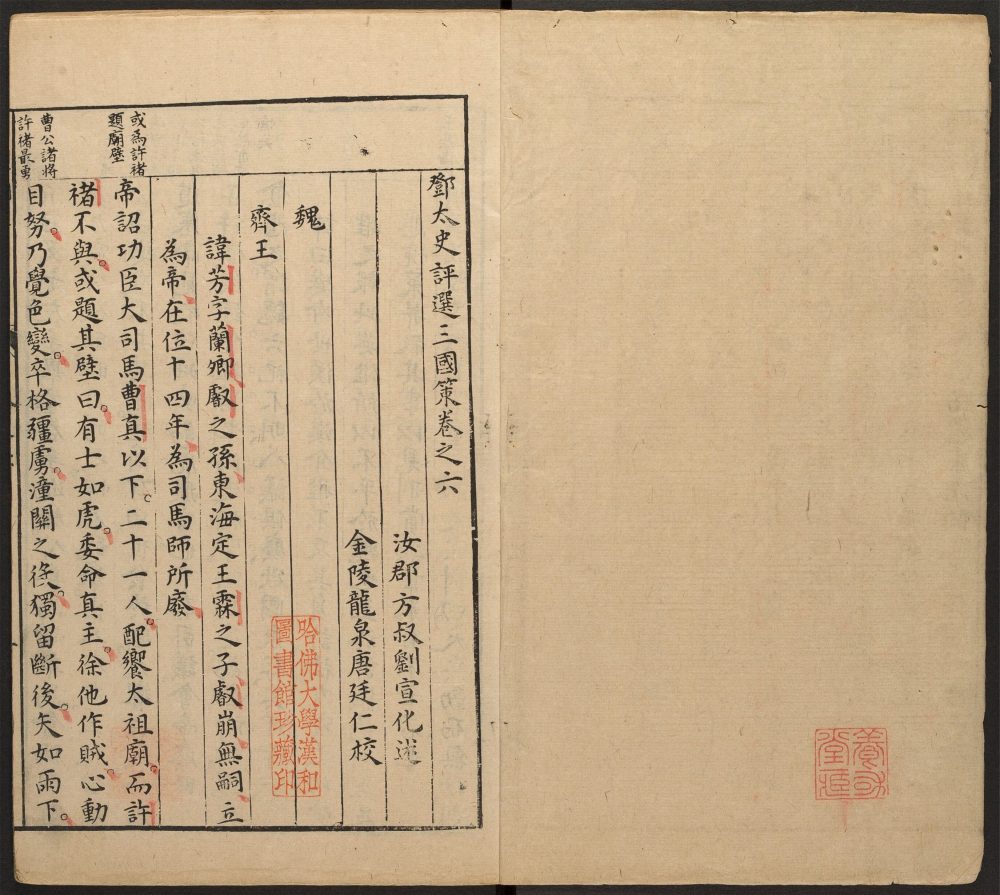 鄧太史評選三國策卷之六
汝郡方叔劉宣化述
金陵龍泉唐廷仁校
魏
齊王
諱芳字蘭卿叡之孫東海定王霖之子叡崩無嗣立
為帝在位十四年為司馬師所廢
帝詔功臣大司馬曹真以下二十一人配饗太祖廟而許
褚不與或題其壁曰有士如虎委命真主徐他作賊心動
目努乃覺色變卒格疆虜潼關之役獨留斷後矢如雨下
或為許褚
題廟壁
曹公諸將
許褚最勇
哈佛大學漢和
圖書館珍藏印